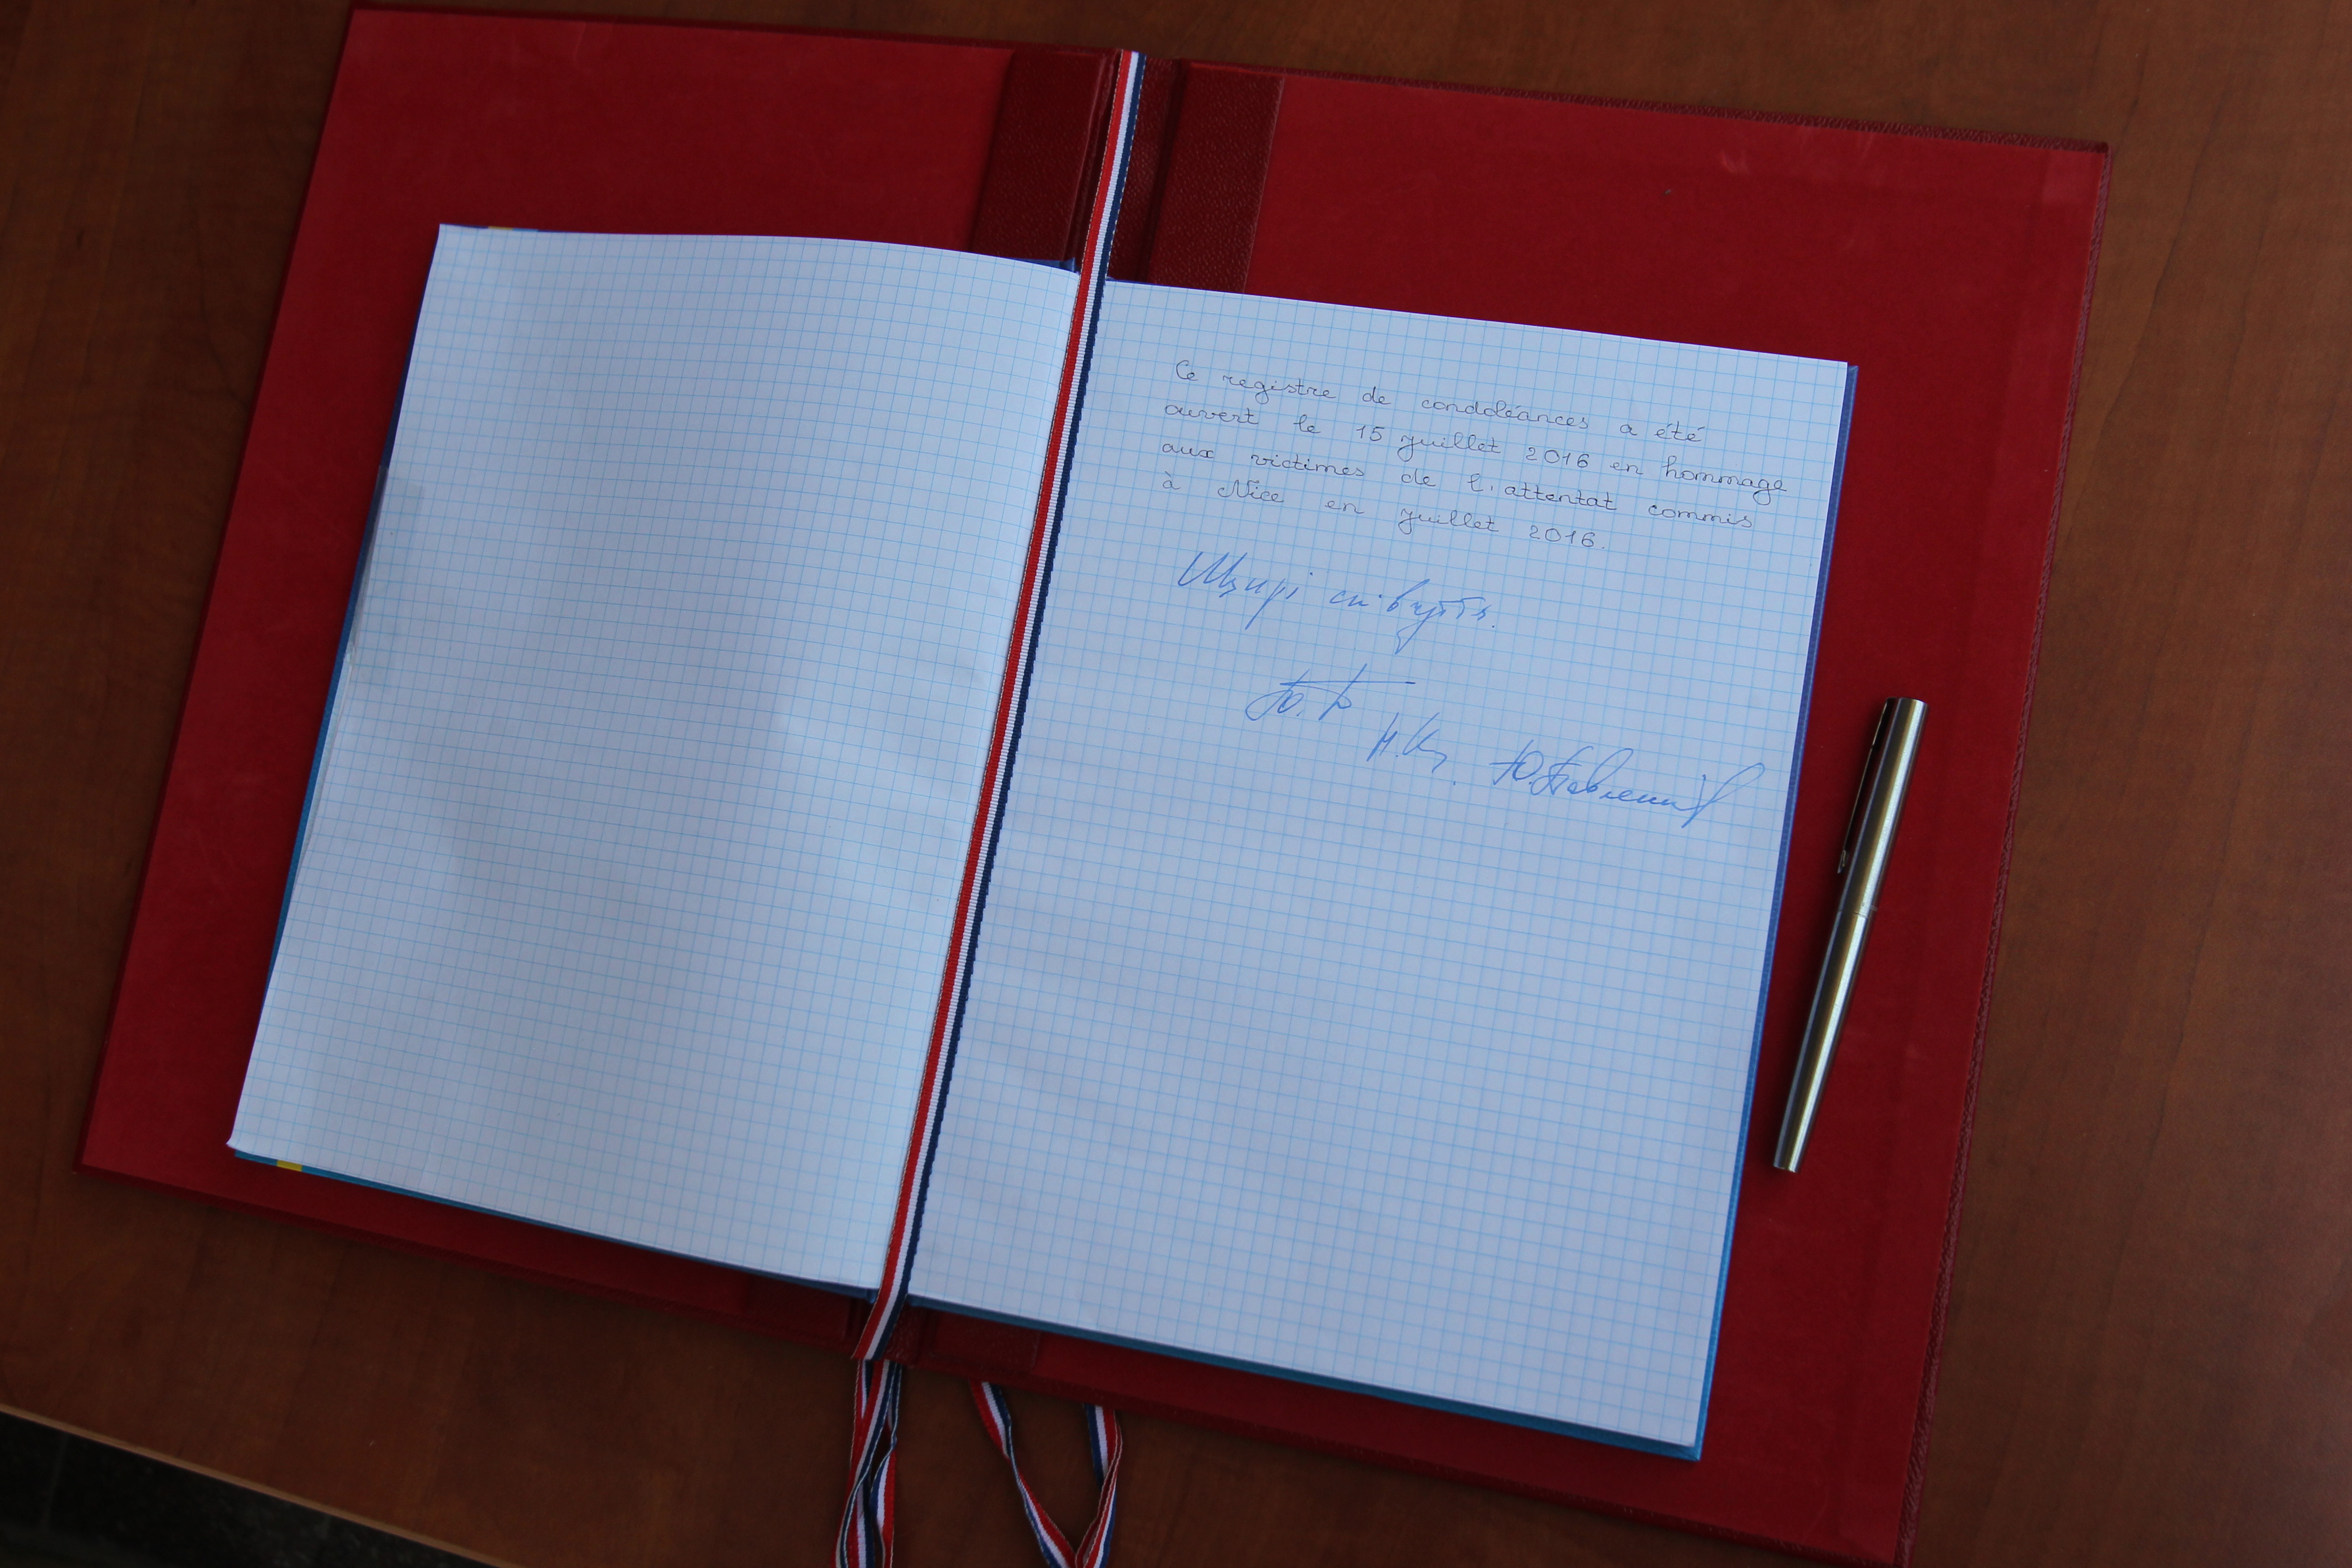 Ce registre de condoléances a été
ouvert le 15 juillet 2016 en hommage
aux victimes de l'attentat commis
à Nice en juillet 2016.
Щирі співчуття.